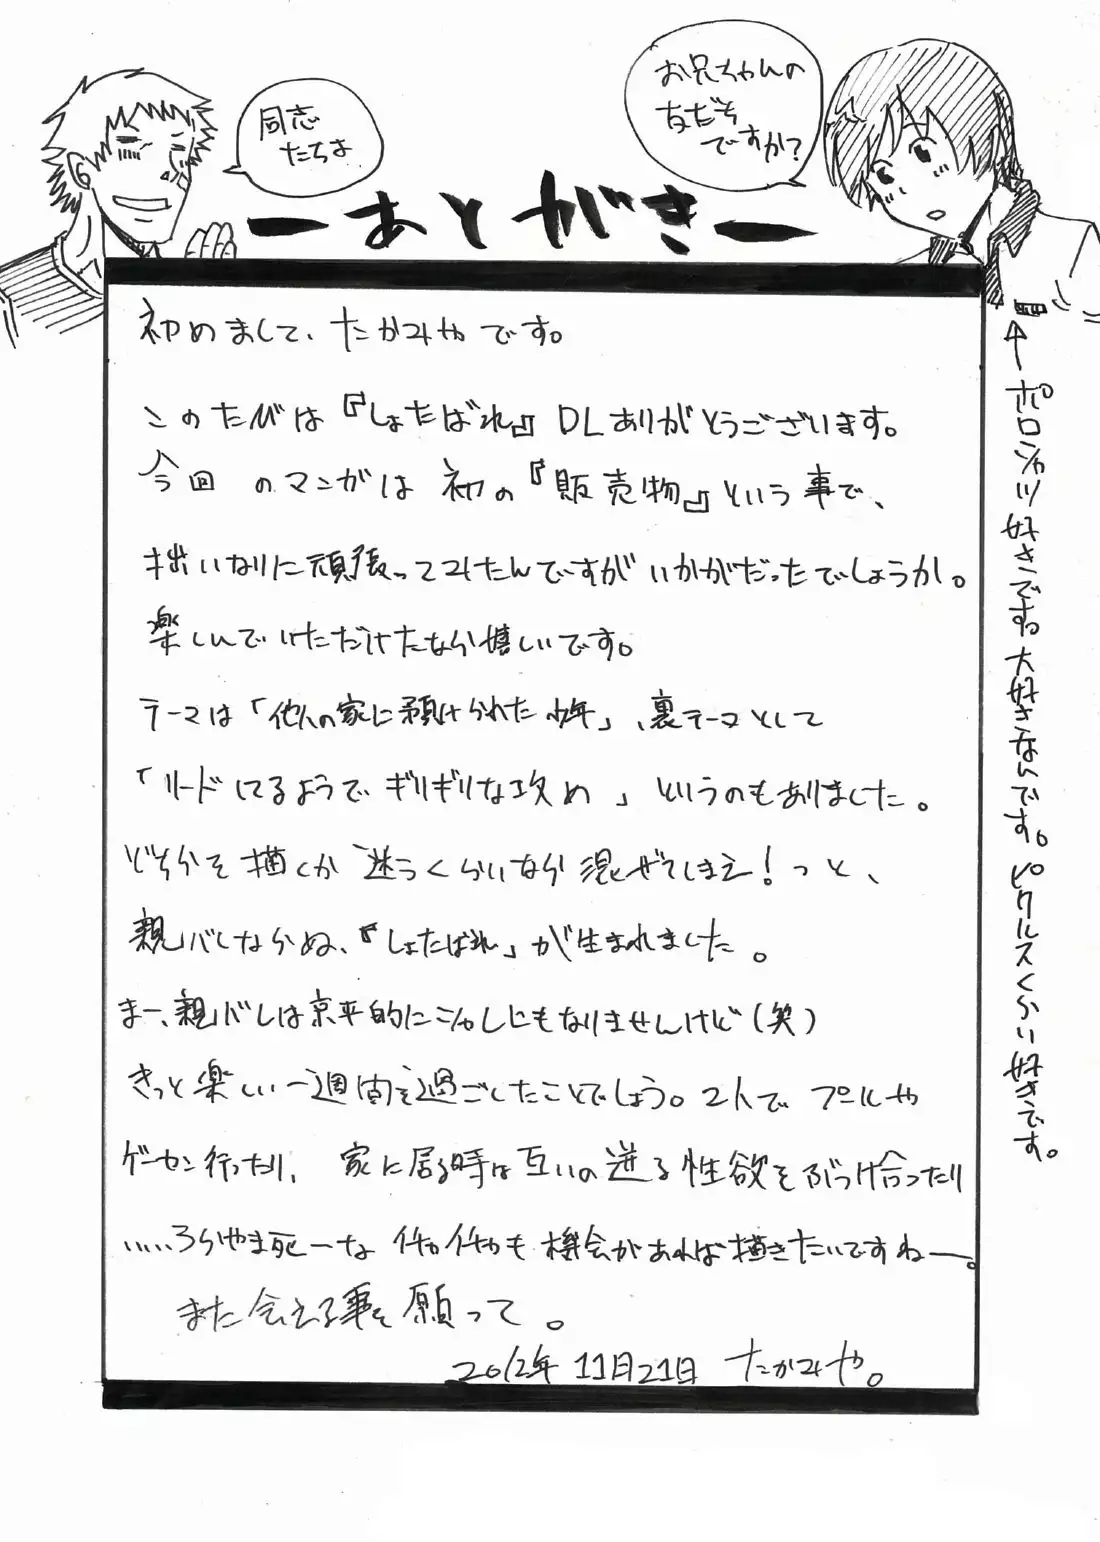 同志
たちよ
お兄ちゃんの
友だち
ですか?
ーあとがきー
初めまして、たかみやです。
このたびは『しょたばれ』DLありがとうございます。
今回のマンガは初の『販売物』という事で、
拙いなりに頑張ってみたんですがいかがだったでしょうか。
楽しんでいただけたなら嬉しいです。
テーマは「他人の家に預けられた少年」、裏テーマとして
「リードしてるようでギリギリな攻め」というのもありました。
どちらを描くか迷うくらいなら混ぜてしまえ!っと、
親バレならぬ、『しょたばれ」が生まれました。
まー、親バレは京平的にシャレにもなりませんけど(笑)
きっと楽しい一週間を過ごしたことでしょう。2人でプールや
ゲーセン行ったり、家に居る時は互いの迸る性欲をぶつけ合ったり
……うらやま死ーなイチャイチャも機会があれば描きたいですねー。
また会える事を願って。
2012年11月21日 たかみや。
←ポロシャツ好きです。大好きなんです。ピクルスくらい好きです。